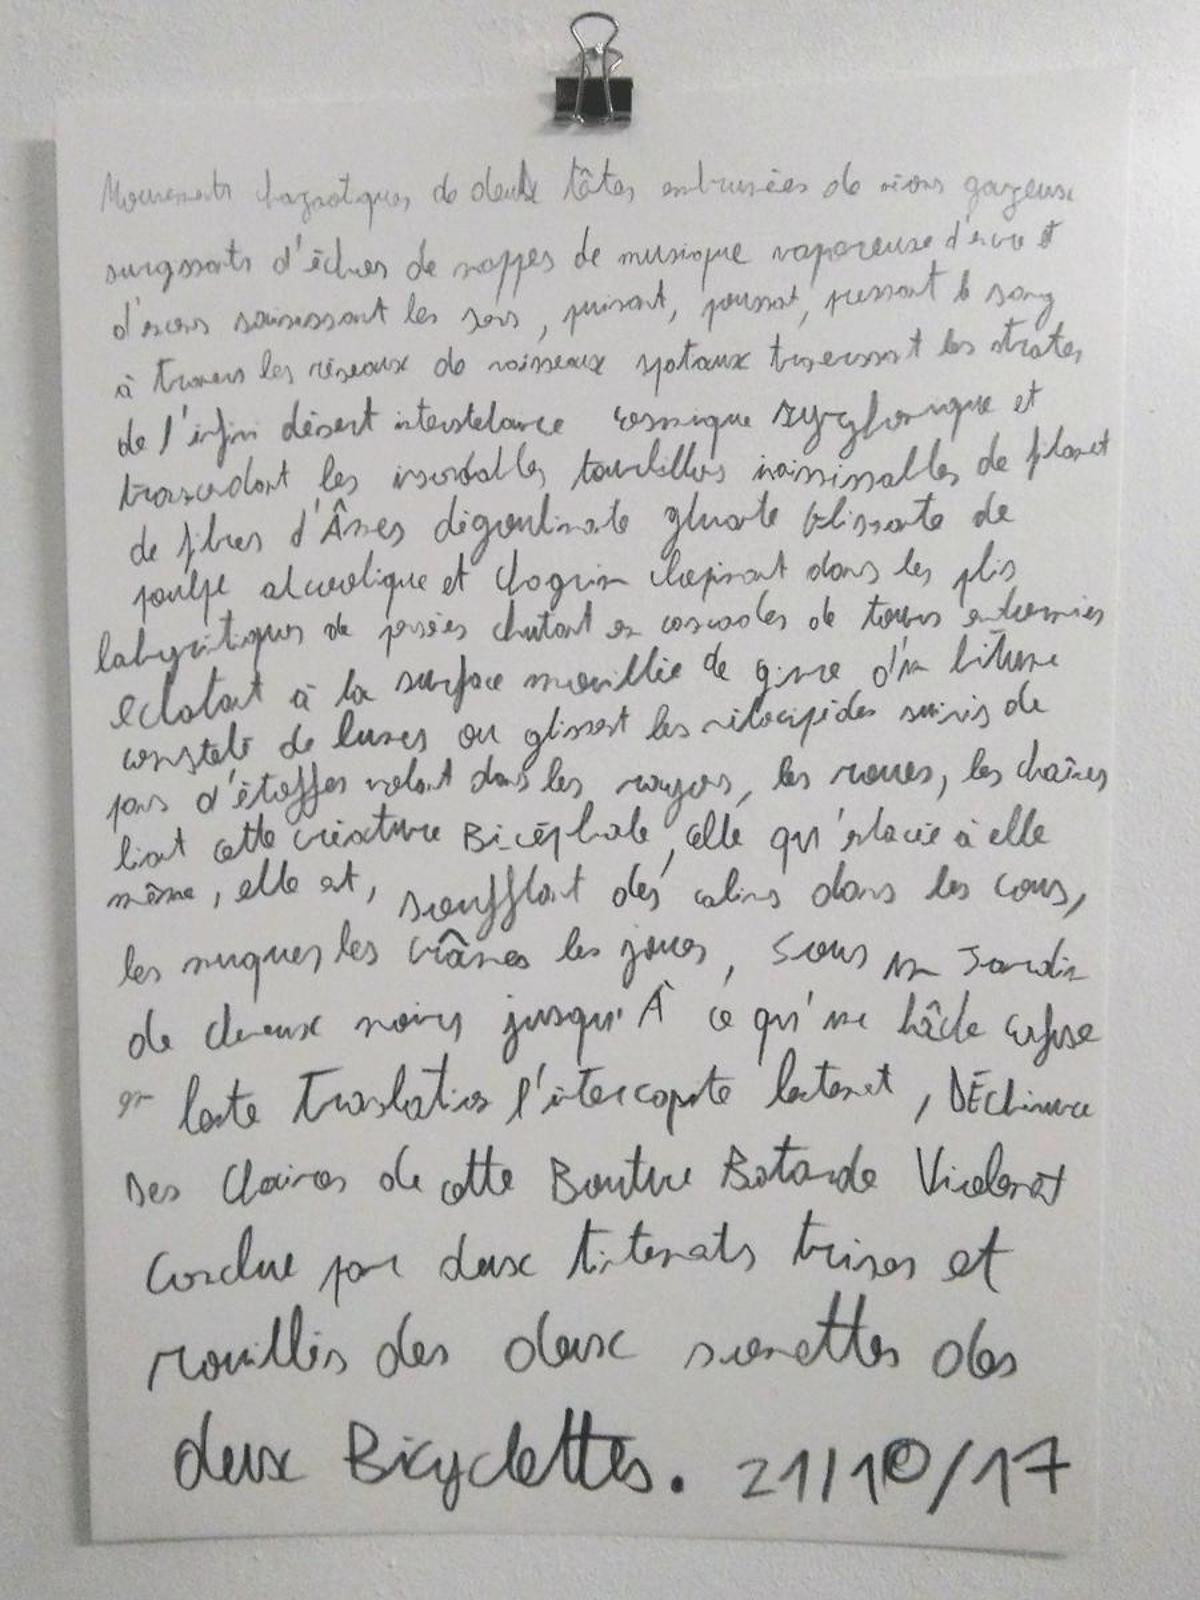 Mouvements de deux têtes embrumées de gazeuse
surgissants d'échos de nappes de musique vaporeuse d'encre et
d'encens saisissant les sens, puisant, poussant, pressant le sang
à travers les réseaux de vaisseaux spatiaux traversant les strates
de l'infini désert interstellaire cosmique et
transcendant les insondables tourbillons insaisissables de
de fibres d'Âmes dégoulinante gluante Glissante de
poulpe alcoolique et Chagrin dans les plis
labyrintiques de pensées chutant en cascades de tours endormies
eclatant à la surface mouillée de givre d'un bitume
constelé de lunes ou glissent les vélocipédes suivis de
pans d'étoffes volant dans les rayons, les roues, les chaînes
liant cette créature Bicéphale, elle qu'enlacée à elle
même, elle est, soufflant des calins dans les cous,
les nuques les crânes les joues, Sous un Jardin
de cheveux noirs jusqu'À ce qu'une
lente Translation l'intercepte, DÉchirure
Des Chaires de cette Bouture Batarde Violente
Conclue par deux tintements brisés et
rouillés des deux sonettes des
deux Bicyclettes. 21/10/17